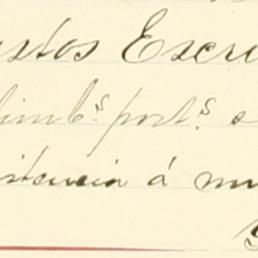 stos Escri
limb.s port.s e
istencia á mu